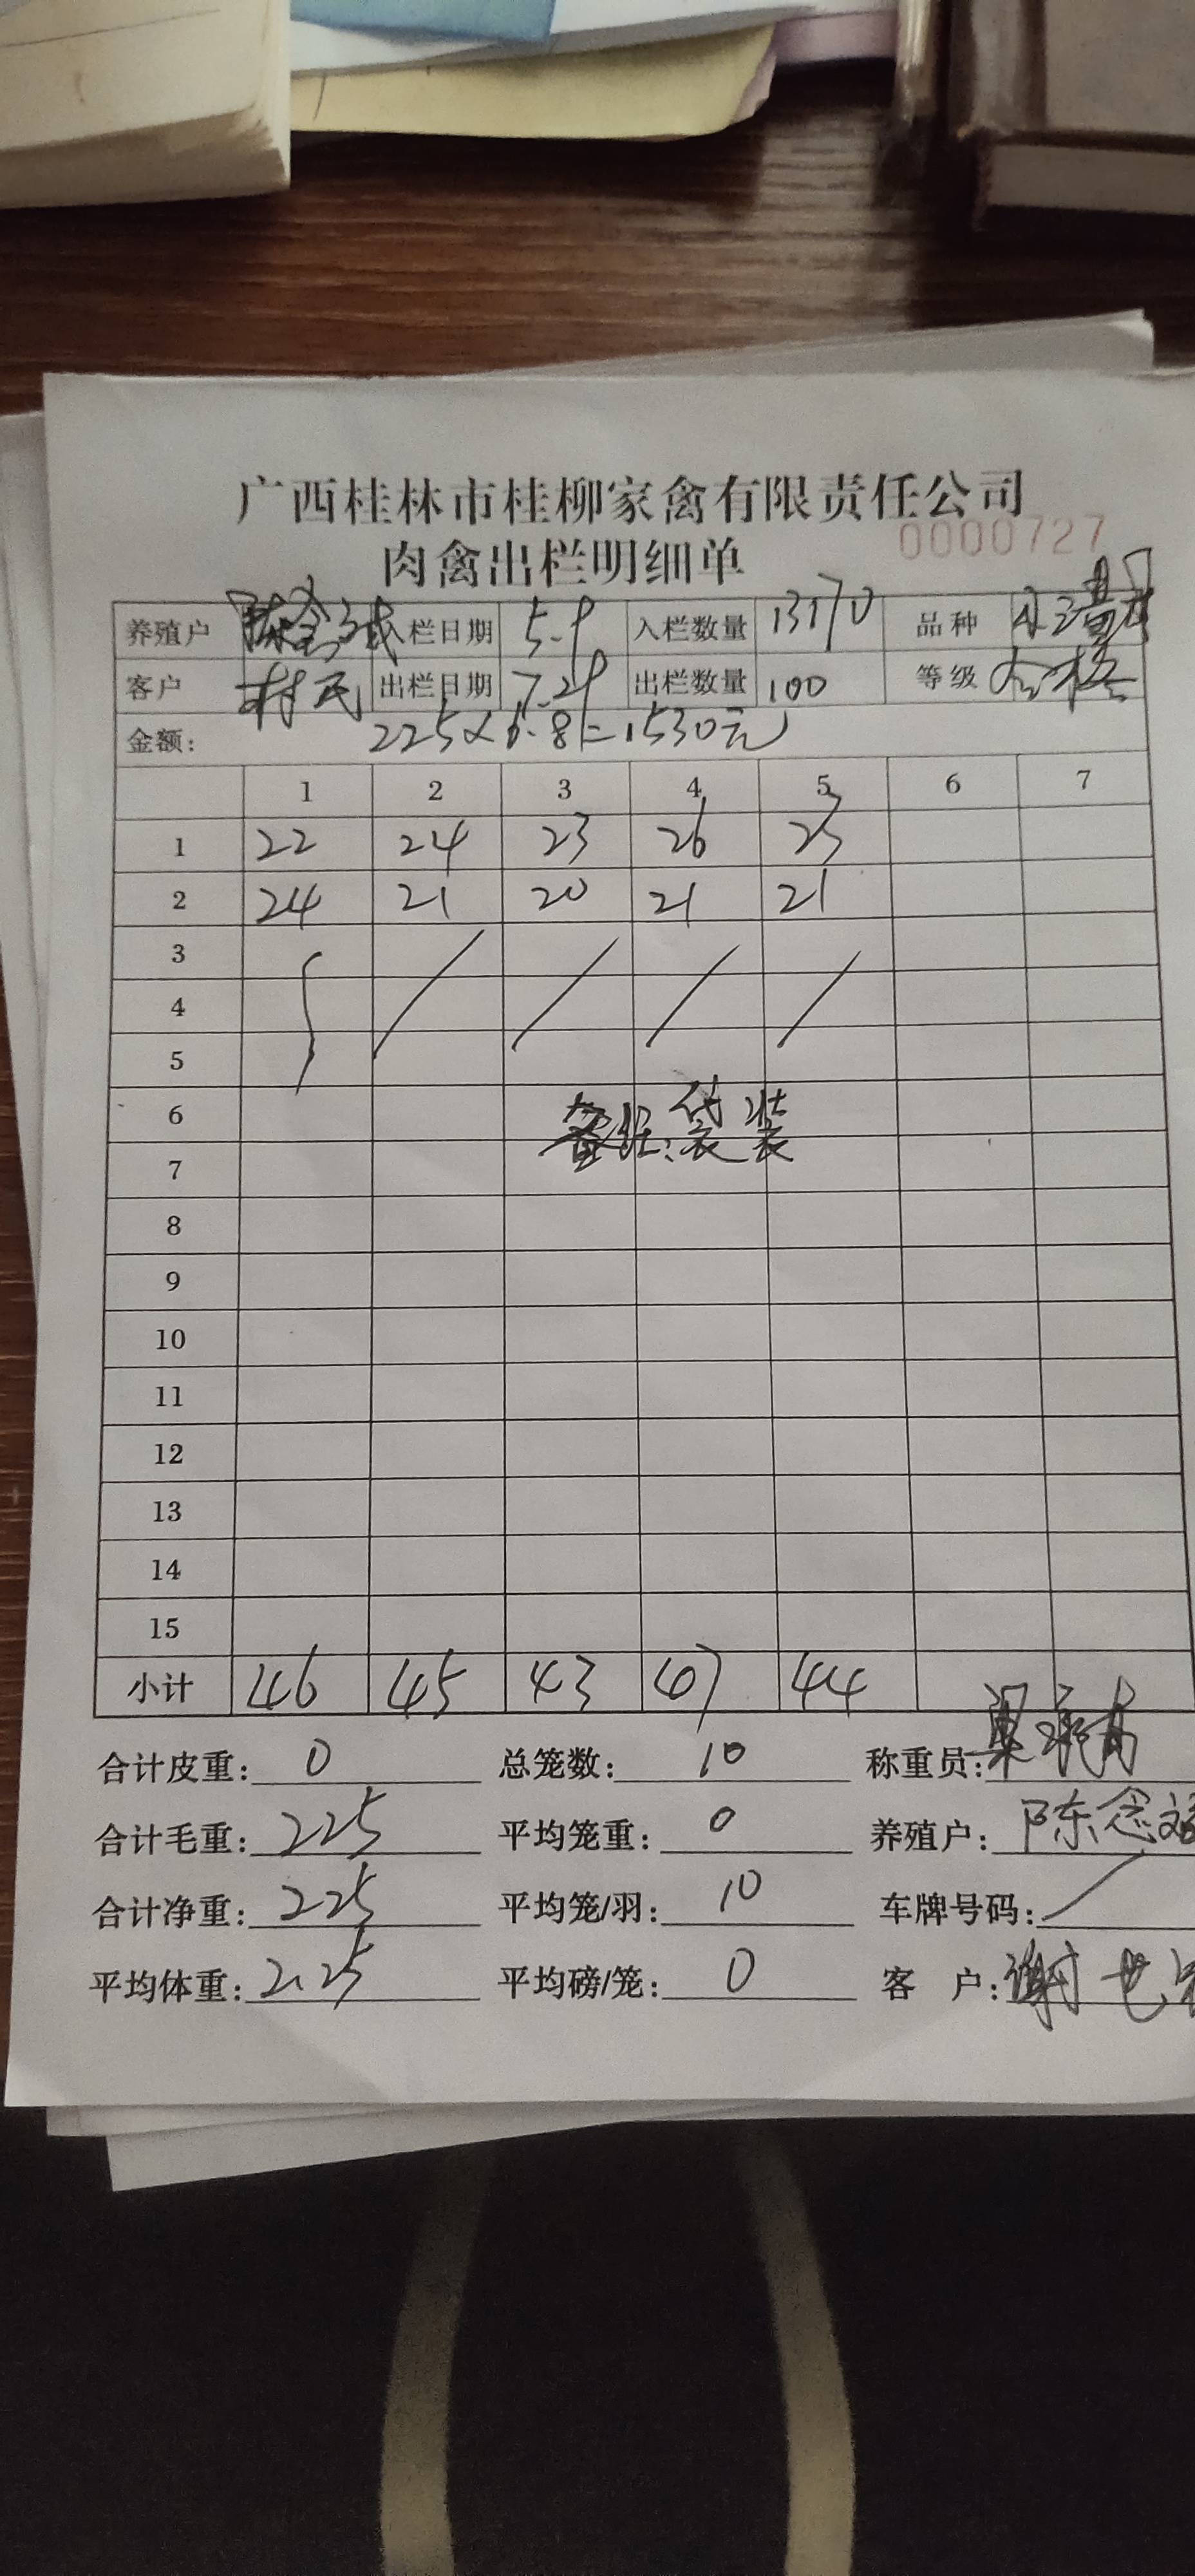 广西桂林市桂柳家禽有限责任公司
0000727
肉禽出栏明细单
养殖户 入栏日期 5.9 入栏数量 13170 品种
客户 村民 出栏日期 7.29 出栏数量 100 等级 合格
金额: 225×6.8=1530元
1 2 3 4 5 6 7
1 22 24 23 26 23
2 24 21 20 21 21
3
4
5
6
7
备注:袋装
8
9
10
11
12
13
14
15
小计 46 45 43 47 44
合计皮重: 0 总笼数: 10 称重员:
合计毛重: 225 平均笼重: 0 养殖户: 陈念
合计净重: 225 平均笼/羽: 10 车牌号码: /
平均体重: 2.25 平均磅/笼: 0 客 户: 谢